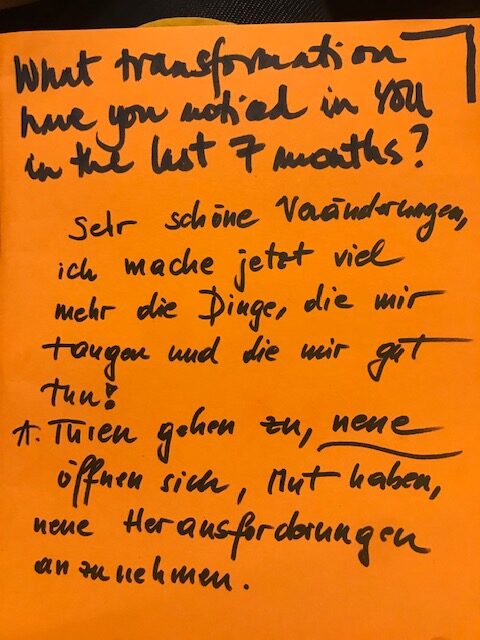 What transformation
have you noticed in YOU
in the last 7 months?
Sehr schöne Veränderungen,
ich mache jetzt viel
mehr die Dinge, die mir
taugen und die mir gut
tun!
A. Türen gehen zu, neue
öffnen sich, Mut haben,
neue Herausforderungen
anzunehmen.